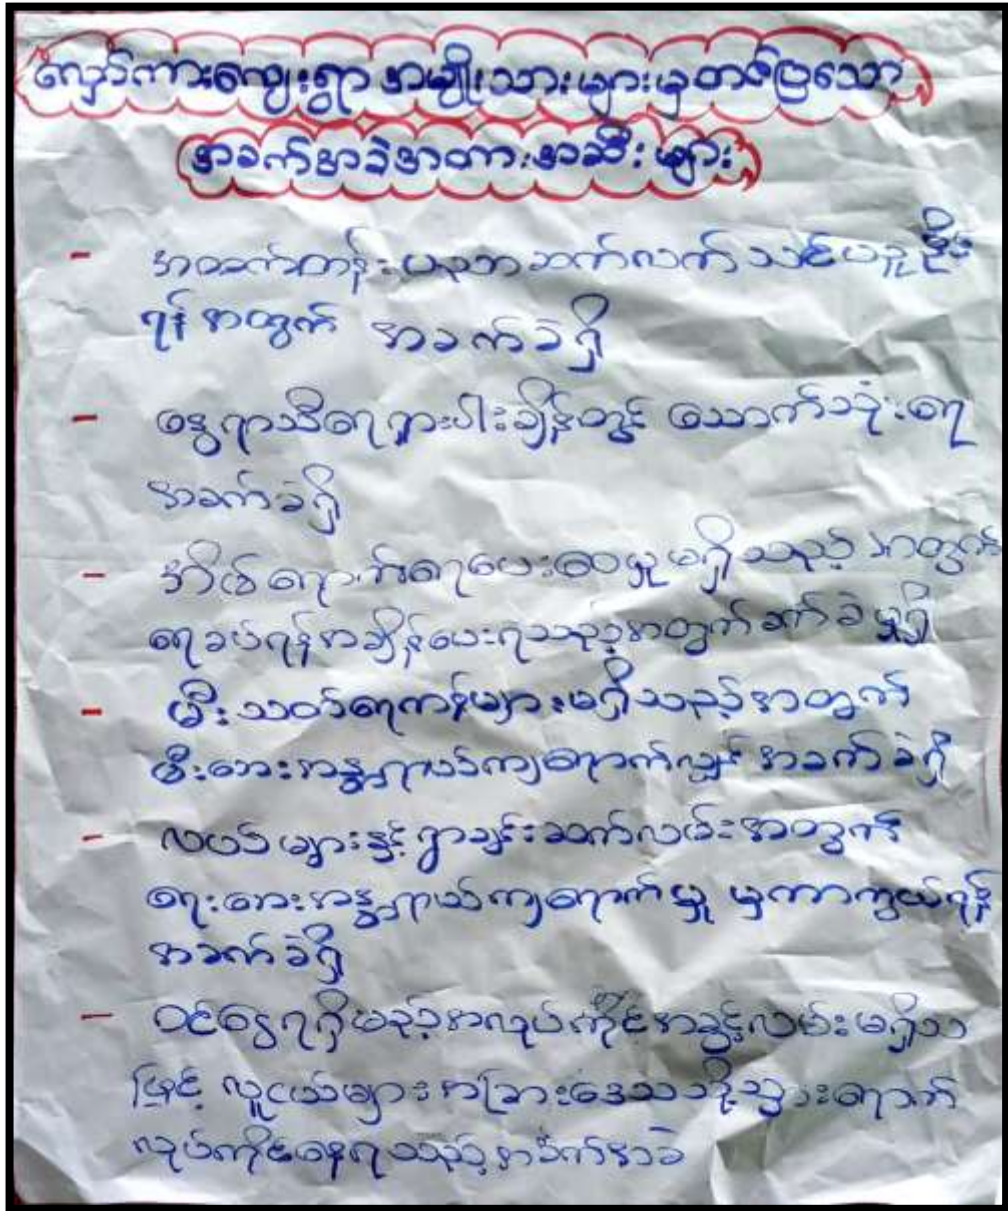 လှော်ကားကျေးရွာ အမျိုးသားများမှတင်ပြသော
အခက်အခဲအတားအဆီး များ
- အထက်တန်း ပညာ ဆက်လက် သင်ယူနိုင်
ရန် အတွက် အခက်ခဲရှိ
- နွေရာသီရေရှားပါးချိန်တွင် သောက်သုံးရေ
အခက်ခဲရှိ
- အိမ် ရောက်ရေပေးဝေမှု မရှိသည့် အတွက်
ရေခပ်ရန်အချိန်ပေးရသည့်အတွက်ခက်ခဲမှုရှိ
- မီးသတ်ရေကန်များမရှိသည့်အတွက်
မီးဘေးအန္တရာယ်ကျရောက်လျှင် အခက်ခဲရှိ
- လယ်များနှင့်ရွာချင်းဆက်လမ်းအတွက်
ရေဘေးအန္တရာယ်ကျရောက်မှု မှကာကွယ်ရန်
အခက်ခဲရှိ
- ဝင်ငွေရရှိမည့်အလုပ်ကိုင်အခွင့်လမ်းမရှိသ
ဖြင့် လူငယ်များအခြားဒေသသို့သွားရောက်
လုပ်ကိုင်နေရသည့်အခက်အခဲ